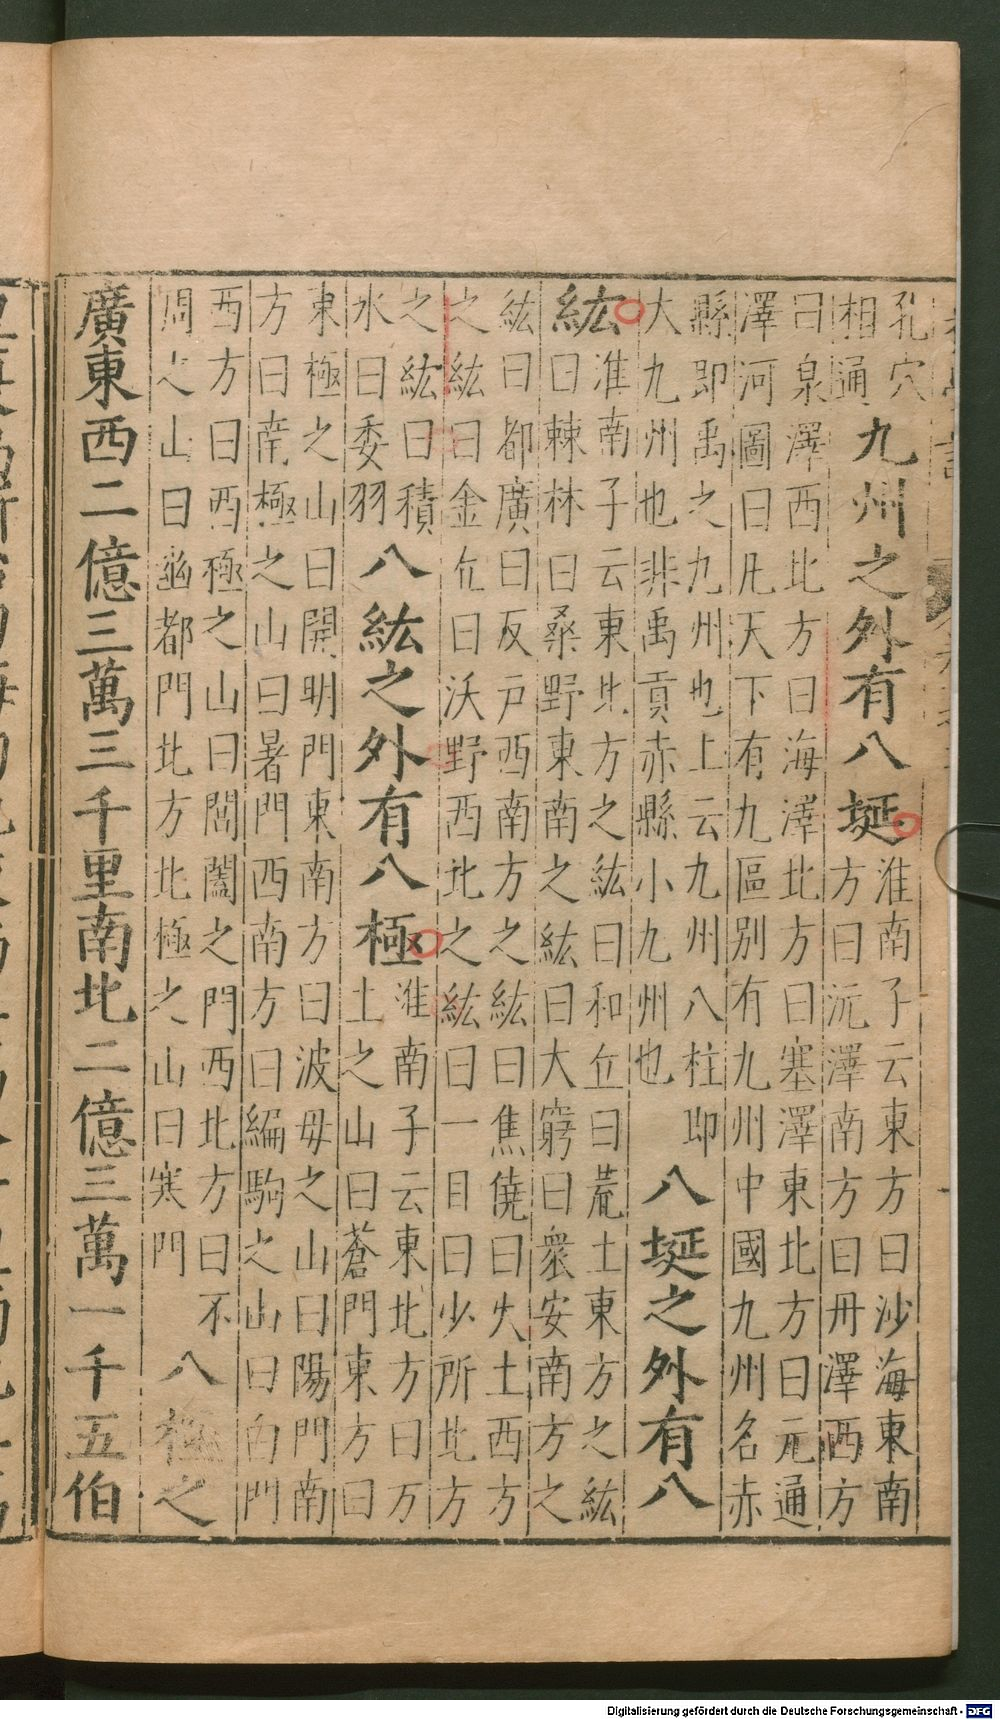 孔穴
相通
九州之外有八埏
淮南子云東方曰沙海東南
方曰沅澤南方曰丹澤西方
曰泉澤西北方曰海澤北方曰塞澤東北方曰元通
澤河圖曰凡天下有九區別有九州中國九州名赤
縣即禹之九州也上云九州八柱即
大九州也非禹貢赤縣小九州也
八埏之外有八
紘
淮南子云東北方之紘曰和丘曰荒土東方之紘
曰棘林曰桑野東南之紘曰大窮曰衆安南方之
紘曰都廣曰反戶西南方之紘曰焦僥曰火土西方
之紘曰金丘曰沃野西北之紘曰一目曰少所北方
之紘曰積
水曰委羽
八紘之外有八極
淮南子云東北方曰方
土之山曰蒼門東方曰
東極之山曰開明門東南方曰波毋之山曰陽門南
方曰南極之山曰暑門西南方曰編駒之山曰白門
西方曰西極之山曰閶闔之門西北方曰不
周之山曰幽都門北方北極之山曰寒門
八極之
廣東西二億三萬三千里南北二億三萬一千五伯
Digitalisierung gefördert durch die Deutsche Forschungsgemeinschaft - DFG